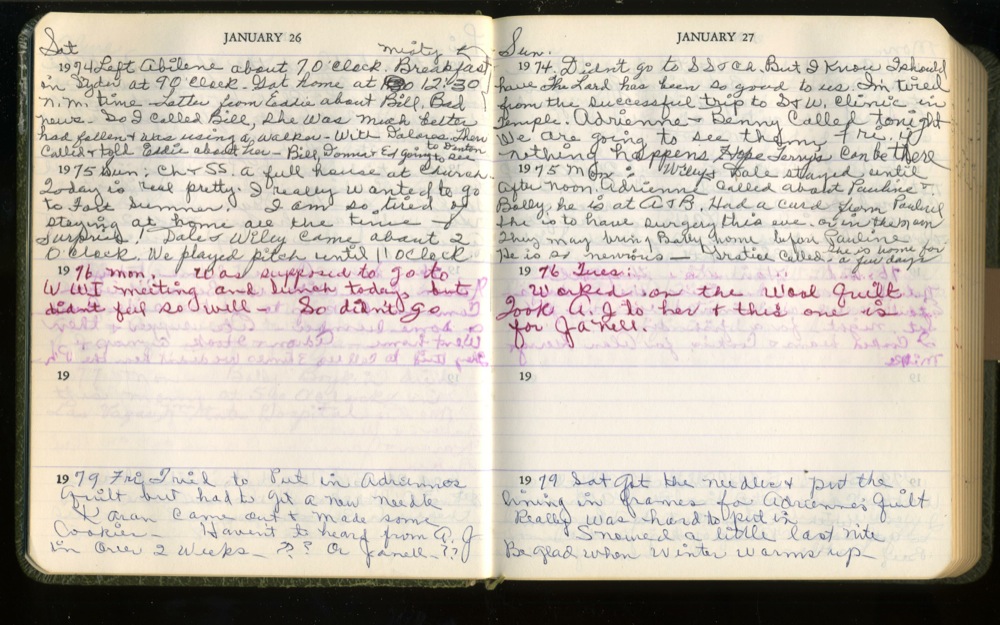 JANUARY 26
Sat misty &
1974 Left Abilene about 7 O'clock. Breakfast
in Snyder at 9 O'clock. Got home at 12:30
N.M. time - Letter from Eddie about Bill, Bad
news. So I called Bill, She was much better
had fallen & was using a walker - With Dolores, Then
Called & told Eddie about her - Bill, Donnie & Ed going to see
to Denton
1975 Sun: Ch & SS. a full house at Church
Today is real pretty. I really wanted to go
to Fort Sumner. I am so tired of
staying at home all the time -
Surprise! Dale & Wiley came about 2
O'clock. We played pitch until 11 O'clock
1976 Mon. Was supposed to go to
WWI meeting and lunch today, but
didnt feel so well - So didn't go
19
1979 Fri Tried to Put in Adriennes
Quilt but had to get a new needle
Karan came out & made some
Cookies - Havent to heard from A. J
in Over 2 Weeks - ?? Or Janell - ??
JANUARY 27
Sun.
1974. Didn't go to SS & Ch. But I Know I should
have The Lord has been so good to us. I'm tired
from the successful trip to S & W. Clinic in
Temple. Adrienne & Benny Called tonight
We are going to see them Fri. if
nothing happens Hope Terry's can be there
1975 Mon: Wiley & Dale stayed until
after noon. Adrienne Called about Pauline &
Bobby, he is at A & B. Had a card from Pauline
She is to have surgery this eve. or in the morn
They may bring Bobby home before Pauline
He is so nervous - Horatice Called. is home for
a few days
1976 Tues:
Worked on the Wool Quilt
Took A. J to her & this one is
for Ja Nell.
19
1979 Sat Got the needles & put the
lining in frames for Adrienne's Quilt
Really was hard to put in
Snowed a little last nite
Be glad when Winter warms up